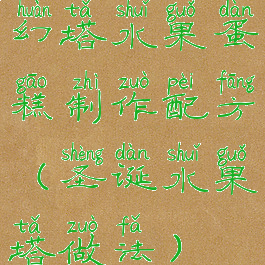 huàn tǎ shuǐ guǒ dàn
幻塔水果蛋
gāo zhì zuò pèi fāng
糕制作配方
shèng dàn shuǐ guǒ
（圣诞水果
tǎ zuò fǎ
塔做法）